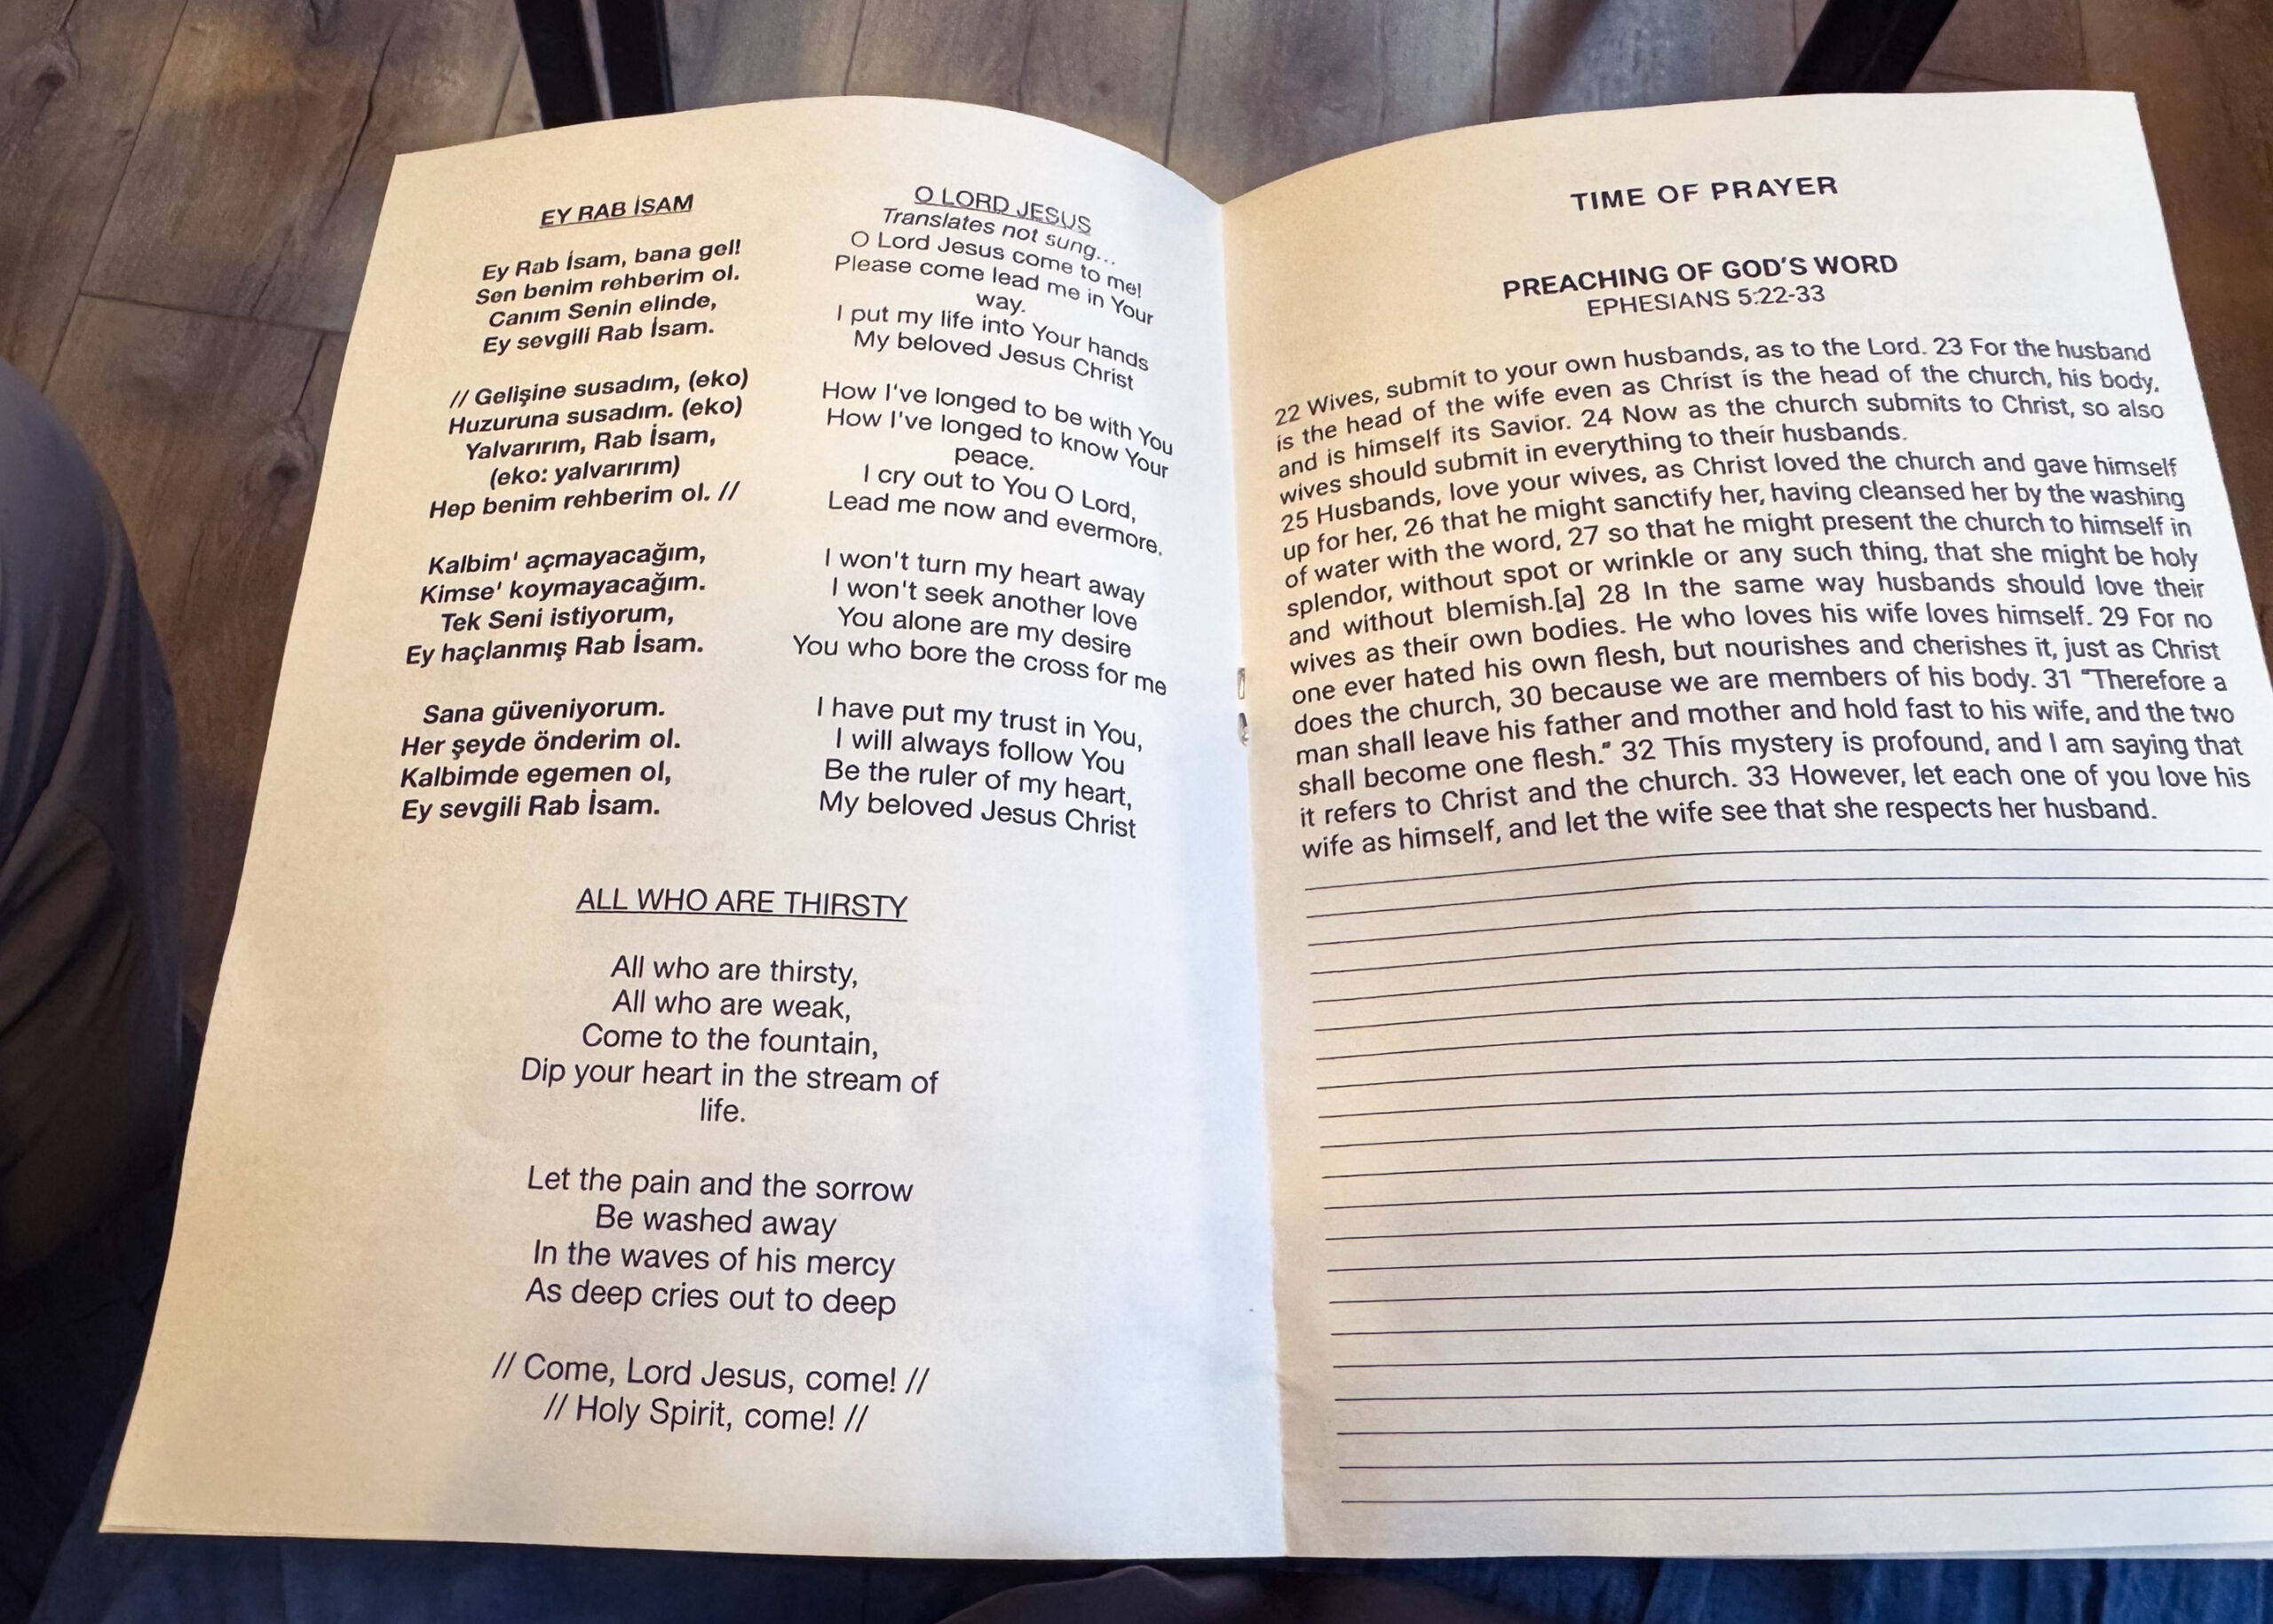 EY RAB İSAM
Ey Rab İsam, bana gel!
Sen benim rehberim ol.
Canım Senin elinde,
Ey sevgili Rab İsam.
// Gelişine susadım, (eko)
Huzuruna susadım. (eko)
Yalvarırım, Rab İsam,
(eko: yalvarırım)
Hep benim rehberim ol. //
Kalbim' açmayacağım,
Kimse' koymayacağım.
Tek Seni istiyorum,
Ey haçlanmış Rab İsam.
Sana güveniyorum.
Her şeyde önderim ol.
Kalbimde egemen ol,
Ey sevgili Rab İsam.
O LORD JESUS
Translates not sung...
O Lord Jesus come to me!
Please come lead me in Your
way.
I put my life into Your hands
My beloved Jesus Christ
How I've longed to be with You
How I've longed to know Your
peace.
I cry out to You O Lord,
Lead me now and evermore.
I won't turn my heart away
I won't seek another love
You alone are my desire
You who bore the cross for me
I have put my trust in You,
I will always follow You
Be the ruler of my heart,
My beloved Jesus Christ
ALL WHO ARE THIRSTY
All who are thirsty,
All who are weak,
Come to the fountain,
Dip your heart in the stream of
life.
Let the pain and the sorrow
Be washed away
In the waves of his mercy
As deep cries out to deep
// Come, Lord Jesus, come! //
// Holy Spirit, come! //
TIME OF PRAYER
PREACHING OF GOD'S WORD
EPHESIANS 5:22-33
22 Wives, submit to your own husbands, as to the Lord. 23 For the husband
is the head of the wife even as Christ is the head of the church, his body,
and is himself its Savior. 24 Now as the church submits to Christ, so also
wives should submit in everything to their husbands.
25 Husbands, love your wives, as Christ loved the church and gave himself
up for her, 26 that he might sanctify her, having cleansed her by the washing
of water with the word, 27 so that he might present the church to himself in
splendor, without spot or wrinkle or any such thing, that she might be holy
and without blemish.[a] 28 In the same way husbands should love their
wives as their own bodies. He who loves his wife loves himself. 29 For no
one ever hated his own flesh, but nourishes and cherishes it, just as Christ
does the church, 30 because we are members of his body. 31 "Therefore a
man shall leave his father and mother and hold fast to his wife, and the two
shall become one flesh." 32 This mystery is profound, and I am saying that
it refers to Christ and the church. 33 However, let each one of you love his
wife as himself, and let the wife see that she respects her husband.